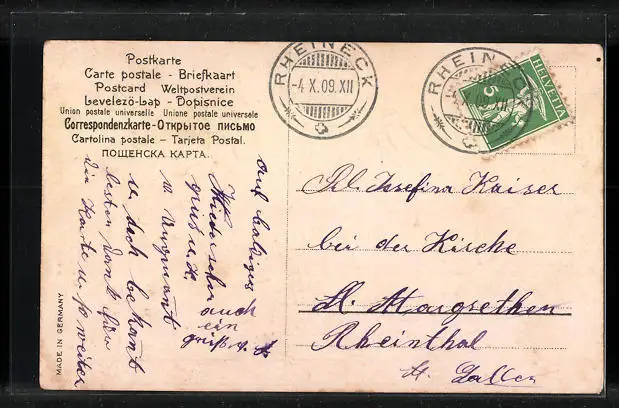 Postkarte
Carte postale - Briefkaart
Postcard Weltpostverein
Levelező-Lap - Dopisnice
Union postale universelle Unione postale universale
Correspondenzkarte - Открытое письмо
Cartolina postale - Tarjeta Postal.
ПОЩЕНСКА КАРТА.
MADE IN GERMANY
RHEINECK
-4 X.09.XII
RHEINECK
09.XII
HELVETIA
5
auf baldiges
auch
ein
u. doch bekannt
besten Dank für
die Karte u. so weiter
Frl. Josefina Kaiser
bei der Kirche
St. Margrethen
Rheinthal
St. Gallen